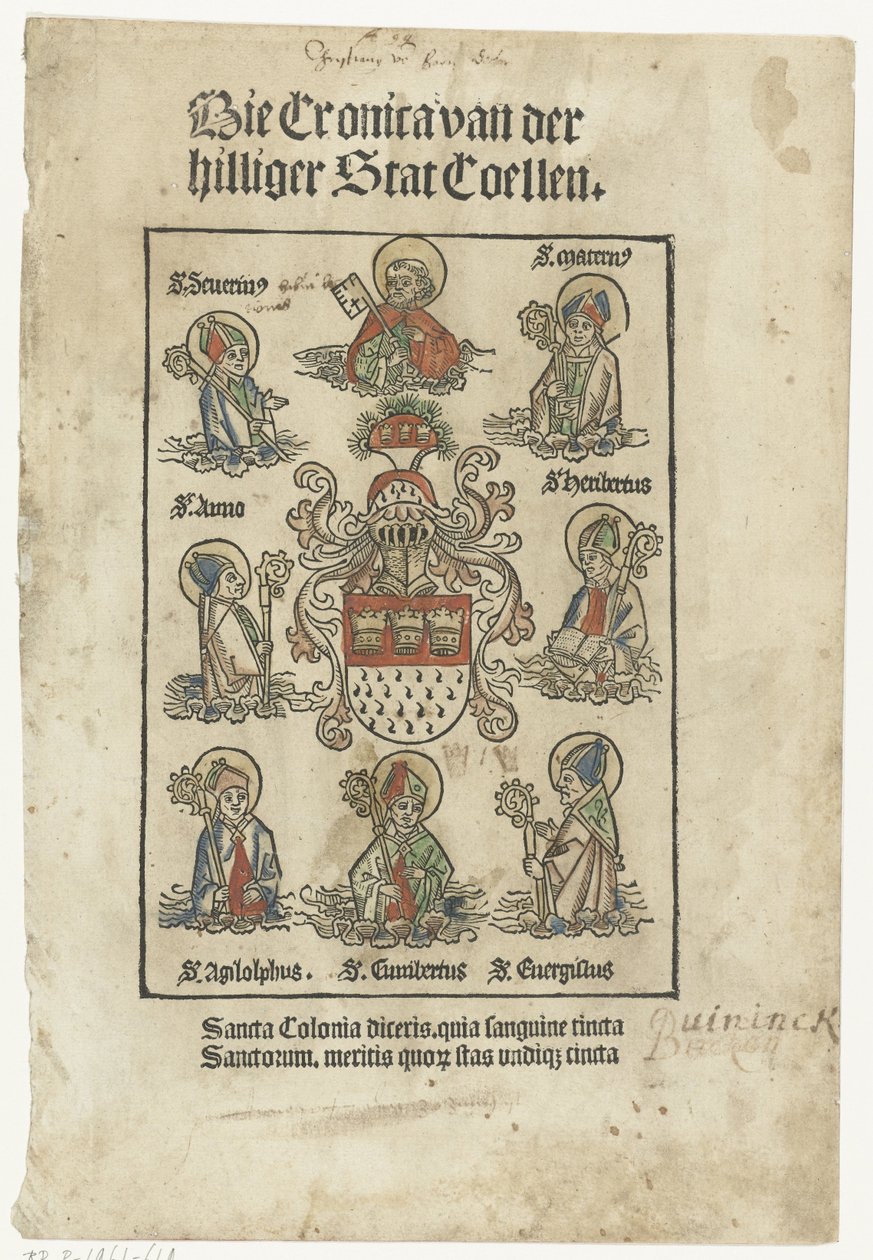 Die Cronica van der
hilliger Stat Coellen.
S. Seuerinꝰ
S. Maternꝰ
S. Anno
S. Heribertus
S. Agilolphus. S. Cunibertus S. Euergislus
Sancta Colonia diceris. quia sanguine tincta
Sanctorum. meritis quoꝝ stas vndiqꝫ cincta
uininck
RP-P-1961-619